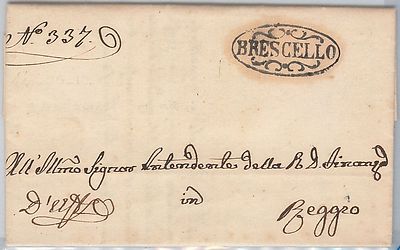 N.º 337.
BRESCELLO
All' Illmo Signor Intendente della R. D. Finanza
D'uffo
in
Reggio